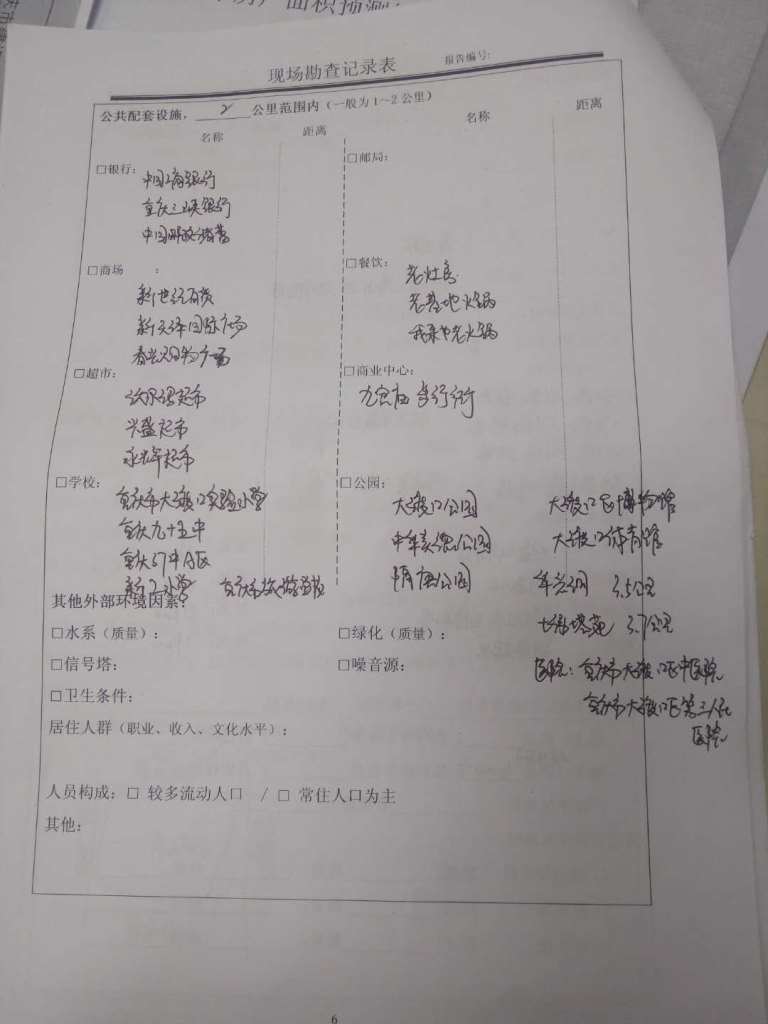 面积预测
现场勘查记录表
报告编号:
公共配套设施，2公里范围内（一般为1~2公里）
名称 距离 名称 距离
□银行: □邮局:
中国工商银行
重庆三峡银行
中国邮政储蓄
□商场 : □餐饮:
新世纪百货 老灶房
新天泽国际广场 老基地火锅
购物广场 老火锅
□超市: □商业中心:
超市 九宫庙步行街
兴盛超市
永辉超市
□学校: □公园:
重庆市大渡口实验小学 大渡口公园 大渡口区博物馆
重庆九十五中 公园 大渡口体育馆
重庆57中A区 公园 3.5公里
小学 重庆市
其他外部环境因素?
3.7公里
□水系（质量）: □绿化（质量）:
□信号塔: □噪音源: 医院: 重庆市大渡口区中医院
□卫生条件: 重庆市大渡口区第三人民
医院
居住人群（职业、收入、文化水平）:
人员构成: □ 较多流动人口 / □ 常住人口为主
其他:
6